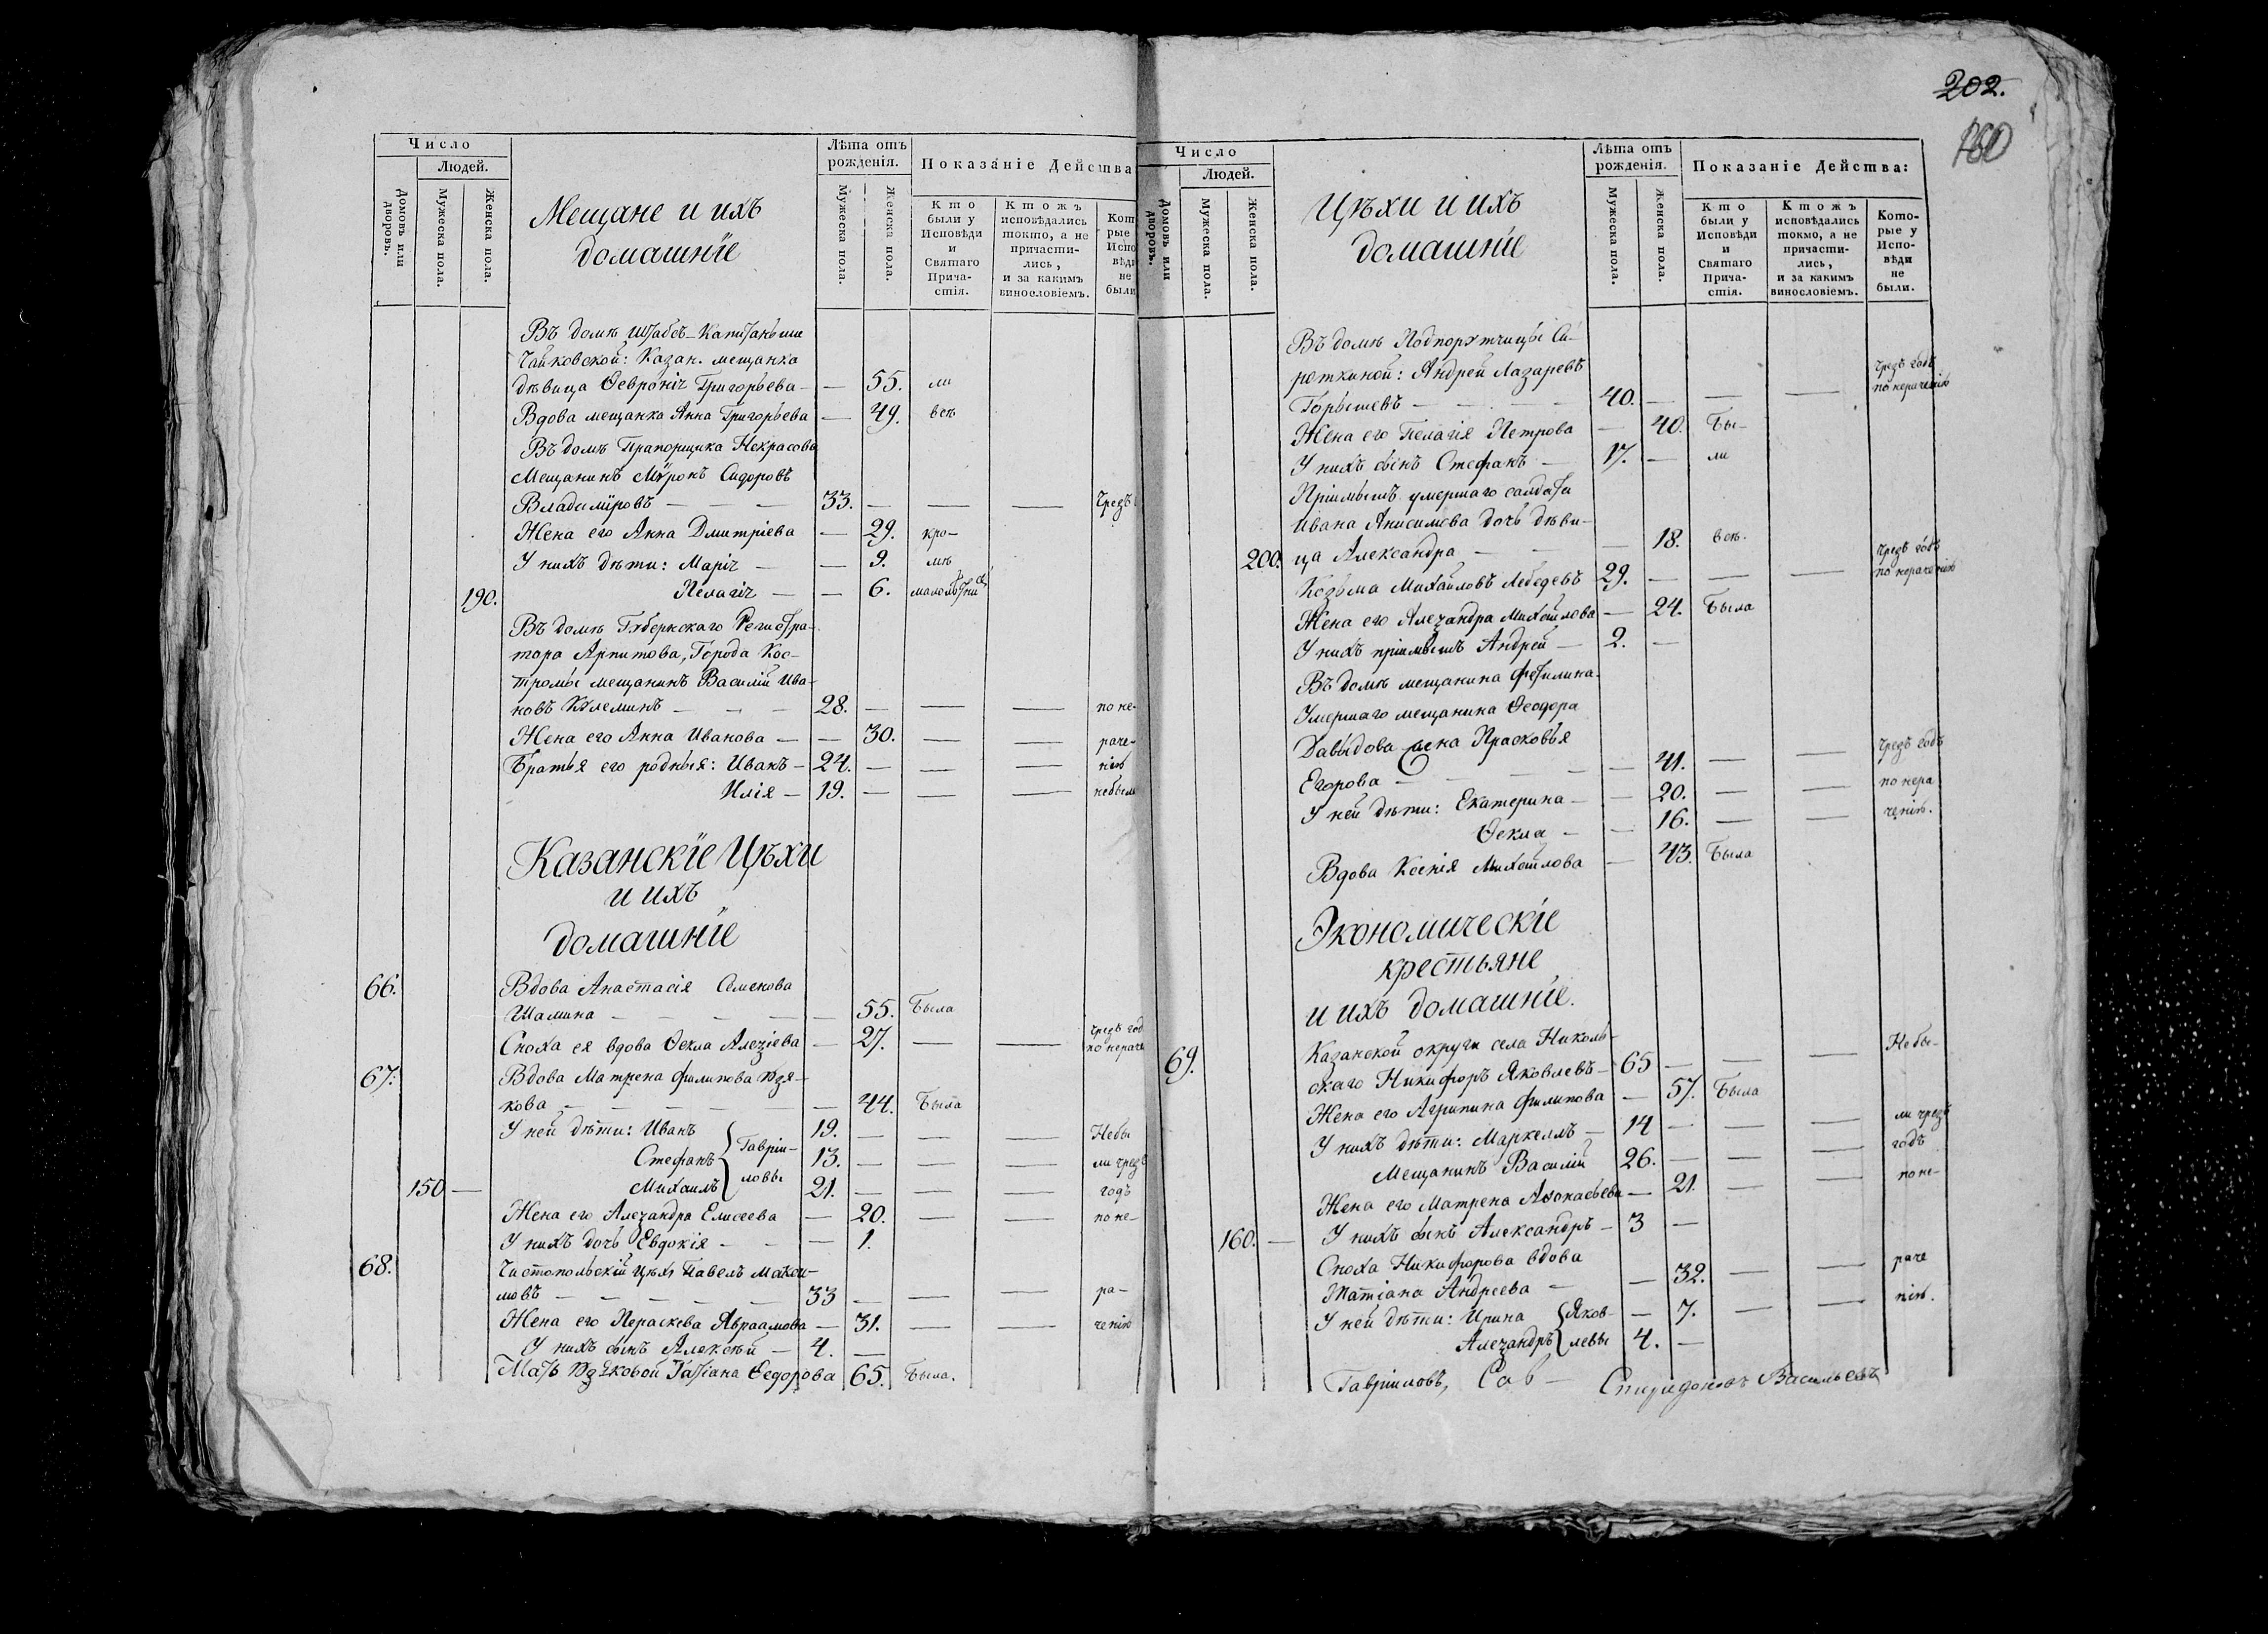 202.
160
Число
Людей.
Домовъ или дворовъ.
Мужеска пола.
Женска пола.
Мещане и ихъ
домашнїе
Лѣта отъ рожденїя.
Мужеска пола.
Женска пола.
Показанїе Дейсшва
Кто были у Исповѣди и Святаго Причастїя.
Ктожъ исповѣдались токмо, а не причастились, и за какимъ винословїемъ.
Кот рые Испо вѣди не были
Въ домѣ Штабсъ-Капитанши
Чайковской: Казан. мещанка
дѣвица Ѳевронїѧ Григорьева — — 55. ли
Вдова мещанка Анна Григорьева — 49. всѣ
Въ домѣ Прапорщика Некрасова
Мещанинъ Мѵронъ Сидоровъ
Владимїровъ — — — 33. — — — Чрезъ
Жена его Анна Дмитрїева — 29. кро-
У нихъ дѣти: Марїѧ — — 9. мѣ
190. Пелагїѧ — — 6. малолѣтныхъ
Въ домѣ Губернскаго Регистра-
тора Арпитова, Города Кос-
тромы мещанинъ Василїй Ива-
новъ — — — 28. — — — по не-
Жена его Анна Иванова — — 30. — — раче-
Братья его родныя: Иванъ — 24. — — — нїю
Илїя — 19. — — — небыли
Казанскїе Цѣхи
и ихъ
домашнїе
66. Вдова Анастасїя Семенова
Шамина — — — — — 55. Была
Сноха ея вдова Ѳекла Алеѯїева — 27. — — чрезъ год по нераче
67. Вдова Матрена Филипова Юзя-
кова — — — — — 44. Была
У ней дѣти: Иванъ 19. — — — Небы
Стефанъ Гаврїи- 13. — — — ли чрезъ
150 — Михаилъ ловы 21. — — — годъ
Жена его Алеѯандра Елисеева — 20. — — по не-
У нихъ дочь Евдокїя — — — 1.
68. Чистопольскїй цѣх: Павелъ Макси-
мовъ — — — — — 33 — — — ра-
Жена его Пераскева Авраамова — 31. — — ченїю
У нихъ сынъ Алексѣй — 4. —
Мать Юзяковой Татїана Ѳедорова 65. Была.
Число
Людей.
Домовъ или дворовъ.
Мужеска пола.
Женска пола.
Цѣхи и ихъ
домашнїе
Лѣта отъ рожденїя.
Мужеска пола.
Женска пола.
Показанїе Дейсшва:
Кто были у Исповѣди и Святаго Причастїя.
Ктожъ исповѣдались токмо, а не причастились, и за какимъ винословїемъ.
Которые у Исповѣди не были.
Въ домѣ Подпорутчицы Си-
роткиной: Андрей Лазаревъ
Горышевъ — — — 40. — — — Чрезъ годъ по нераченїю
Жена его Пелагїя Петрова — 40. Бы-
У нихъ сынъ Стефанъ — 17. — ли
Прїимышъ умершаго солдата
Ивана Анисимова дочь дѣви-
200. ца Александра — — — 18. всѣ.
Козьма Михайловъ Лебедевъ 29. — — — Чрезъ годъ по нераченїю
Жена его Алеѯандра Михайлова — 24. Была
У нихъ прїимышъ Андрей — 2. —
Въ домѣ мещанина
Умершаго мещанина Ѳеодора
Давыдова жена Прасковья
Егорова — — — — 41. — — Чрезъ годъ
У ней дѣти: Екатерина — — 20. — — по нера
Ѳекла — — 16. — — ченїю.
Вдова Ксенїя Михайлова — 43. Была
Экономическїе
крестьяне
и ихъ домашнїе.
69. Казанской округи села Николь-
скаго Никифоръ Яковлевъ — 65 — — — Небы-
Жена его Агрипина Филипова — 57. Была
У нихъ дѣти: Маркеллъ — 14 — — — ли чрезъ
Мещанинъ Василїй 26. — — — годъ
Жена его Матрена Аѳонасьева — 21. — — по не-
160. — У нихъ сынъ Александръ — 3 —
Сноха Никифорова вдова
Татїана Андреева — — 32. — — раче
У ней дѣти: Ирина Яков- — 7. — — нїю.
Алеѯандръ левы 4. —
Гаврїиловъ, Сав — Спиридоновъ Васильевъ